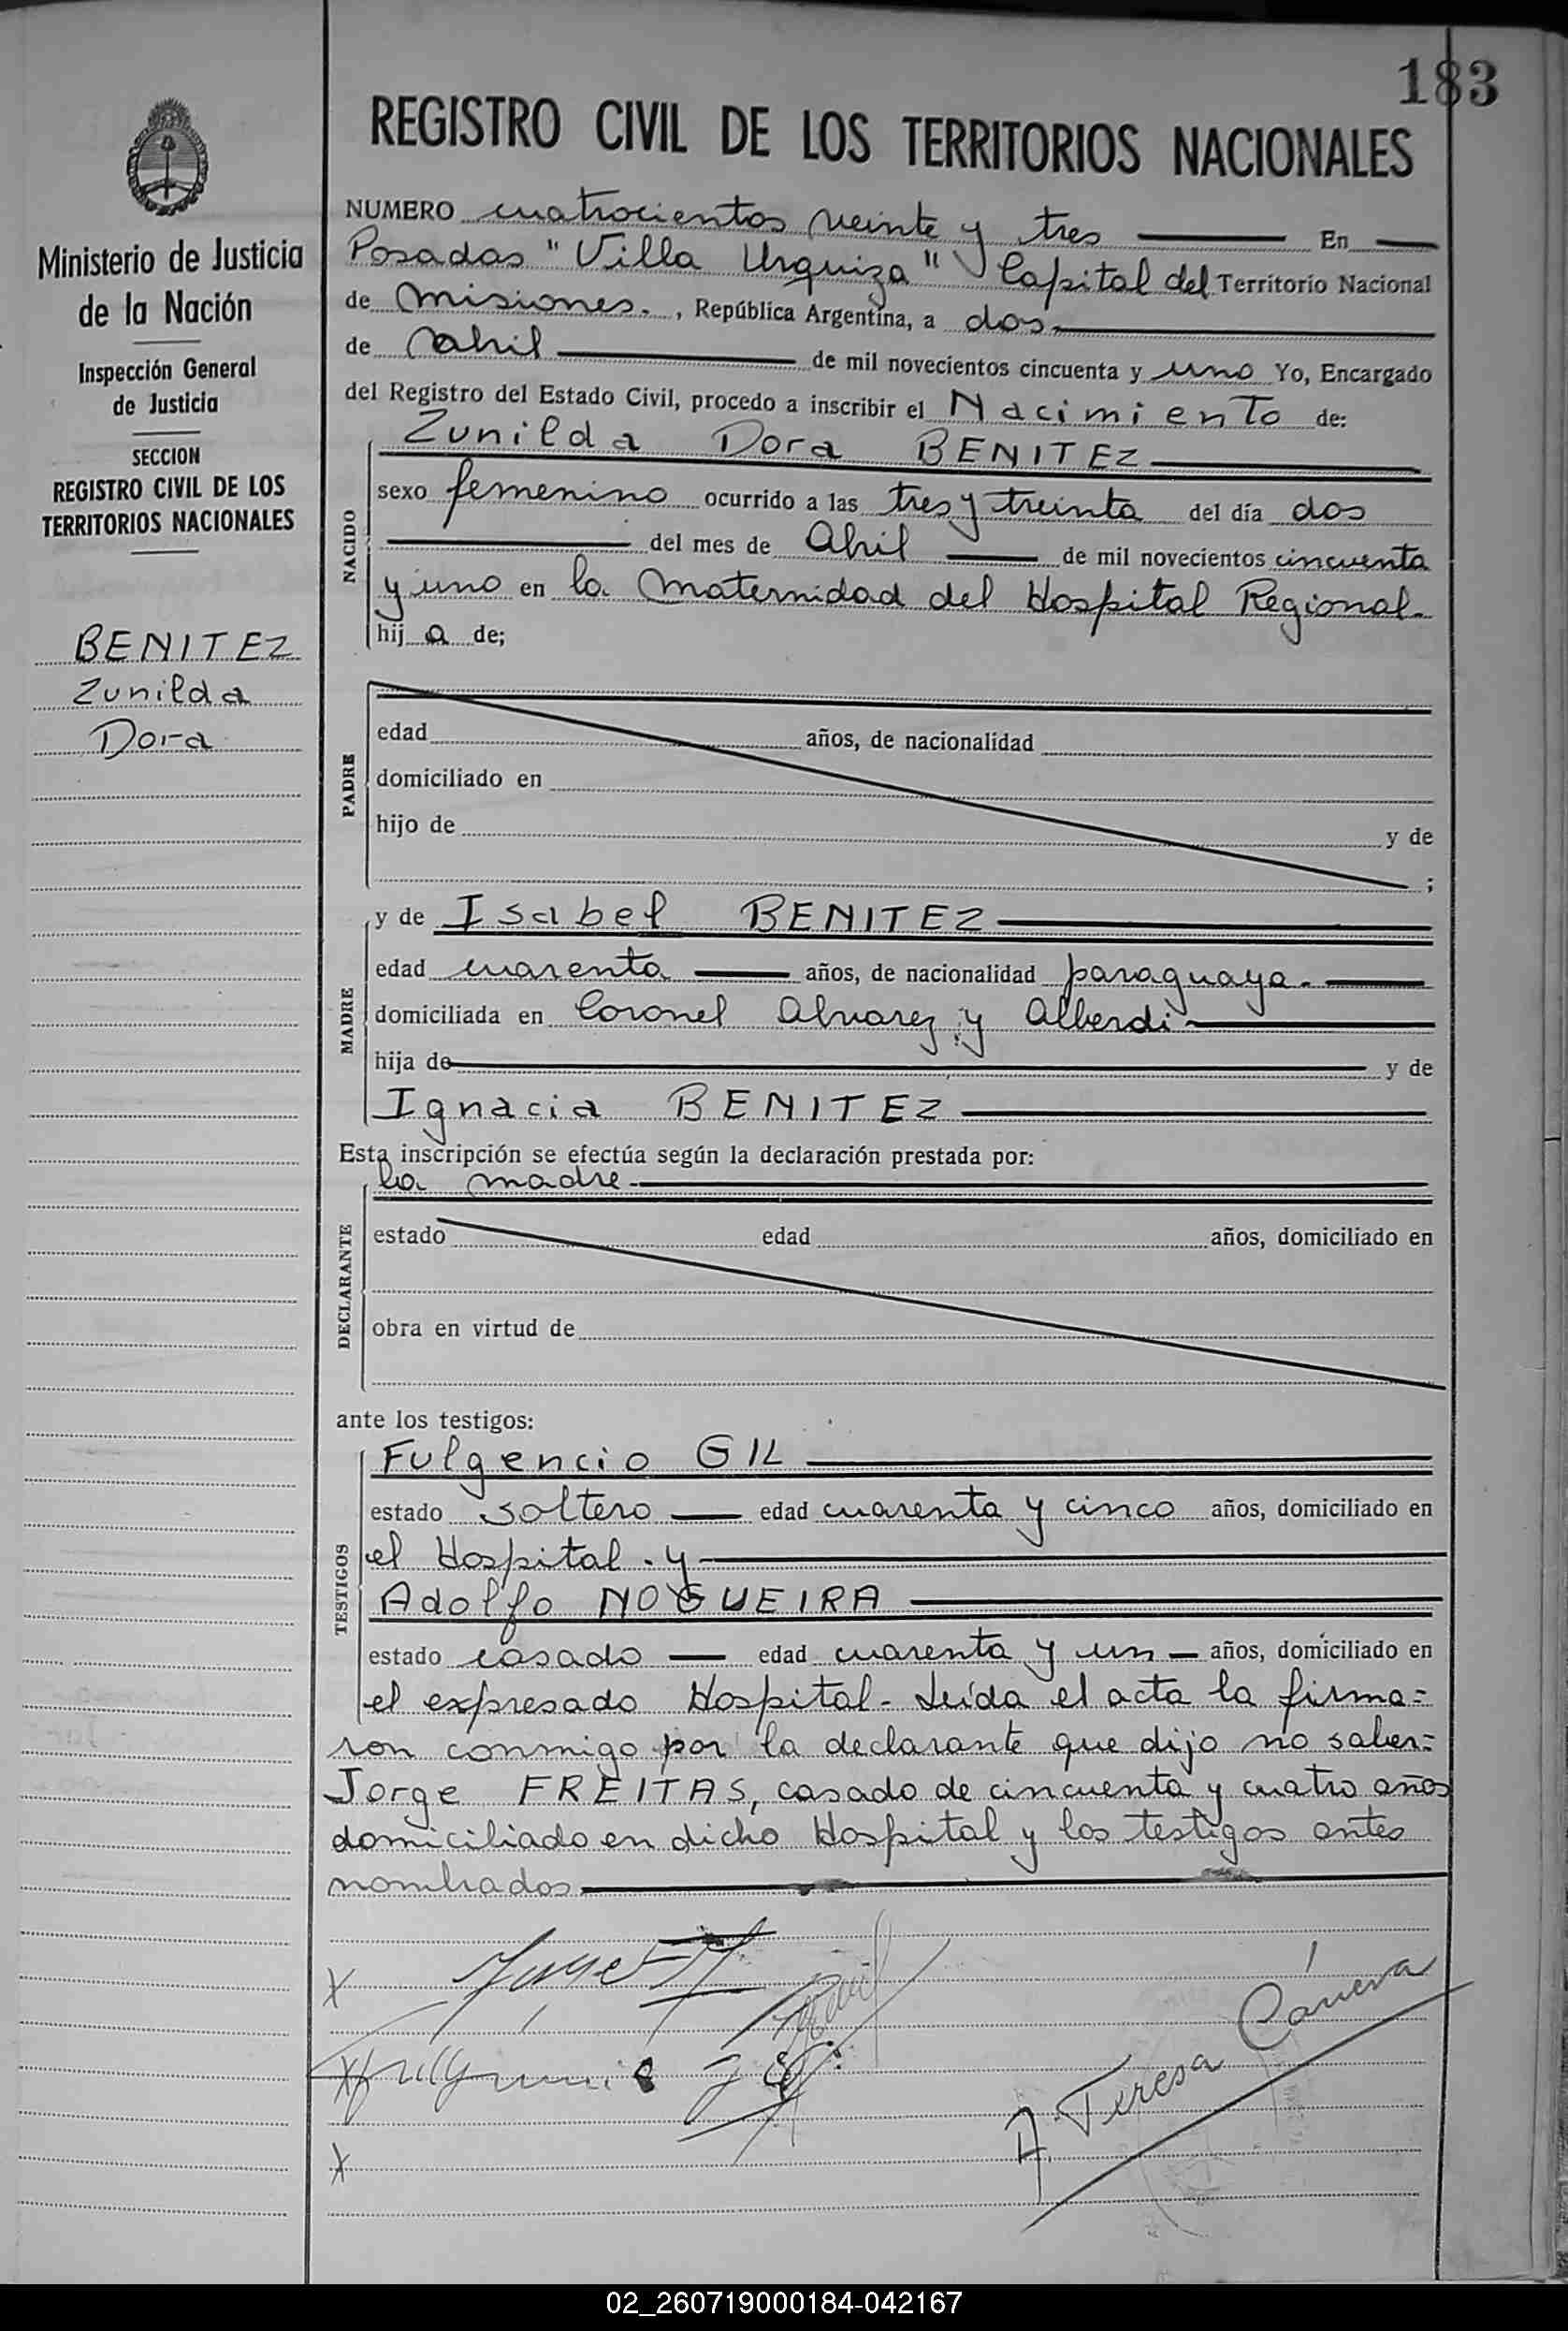 183
REGISTRO CIVIL DE LOS TERRITORIOS NACIONALES
Ministerio de Justicia
de la Nación
Inspección General
de Justicia
SECCION
REGISTRO CIVIL DE LOS
TERRITORIOS NACIONALES
BENITEZ
Zunilda
Dora
NUMERO cuatrocientos veinte y tres En
Posadas "Villa Urquiza" Capital del Territorio Nacional
de Misiones. , República Argentina, a dos
de Abril de mil novecientos cincuenta y uno Yo, Encargado
del Registro del Estado Civil, procedo a inscribir el Nacimiento de:
NACIDO
Zunilda Dora BENITEZ
sexo femenino ocurrido a las tres y treinta del día dos
del mes de Abril de mil novecientos cincuenta
y uno en la Maternidad del Hospital Regional.
hij a de;
PADRE
edad años, de nacionalidad
domiciliado en
hijo de y de
;
MADRE
y de Isabel BENITEZ
edad cuarenta años, de nacionalidad paraguaya.
domiciliada en Coronel Alvarez y Alberdi
hija de y de
Ignacia BENITEZ
Esta inscripción se efectúa según la declaración prestada por:
DECLARANTE
la madre
estado edad años, domiciliado en
obra en virtud de
ante los testigos:
TESTIGOS
Fulgencio GIL
estado soltero edad cuarenta y cinco años, domiciliado en
el Hospital. y
Adolfo NOGUEIRA
estado casado edad cuarenta y un años, domiciliado en
el expresado Hospital- Leída el acta la firma=
ron conmigo por la declarante que dijo no saber=
Jorge FREITAS, casado de cincuenta y cuatro años
domiciliado en dicho Hospital y los testigos antes
nombrados
x
x
x
A. Teresa Cáneva
02_260719000184-042167